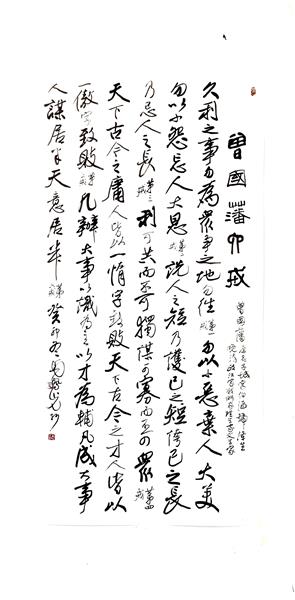 曾國藩六戒
久利之事勿為眾爭之地勿往第一戒勿以小惡棄人大美
勿以小怨忘人大恩第二戒說人之短乃護己之短誇己之長
乃忌人之長第三戒利可共而不可獨謀可寡而不可眾第四戒
天下古今之庸人皆以一惰字致敗天下古今之才人皆以
一傲字致敗第五戒凡辦大事以識為主以才為輔凡成大事
人謀居半天意居半第六戒癸卯冬